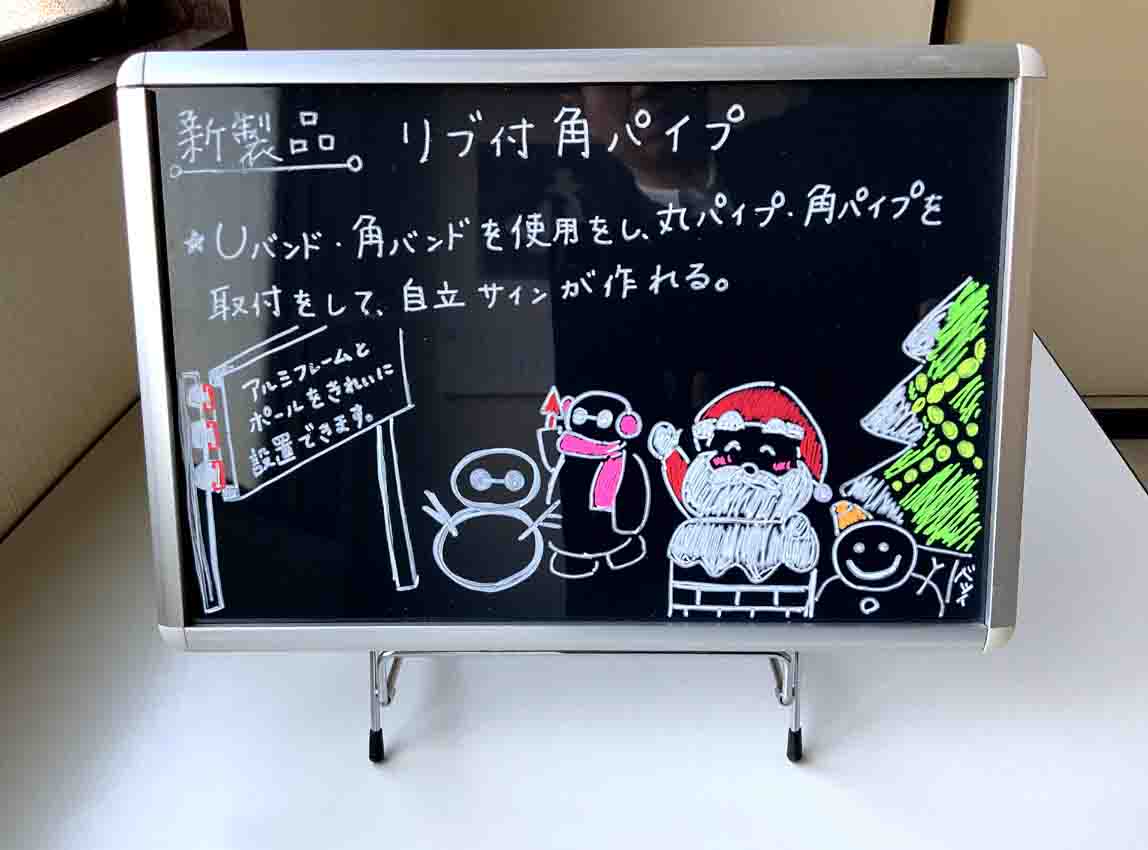 新製品 リブ付角パイプ
★Uバンド・角バンドを使用をし、丸パイプ・角パイプを
取付をして、自立サインが作れる。
アルミフレームと
ポールをきれいに
設置できます。